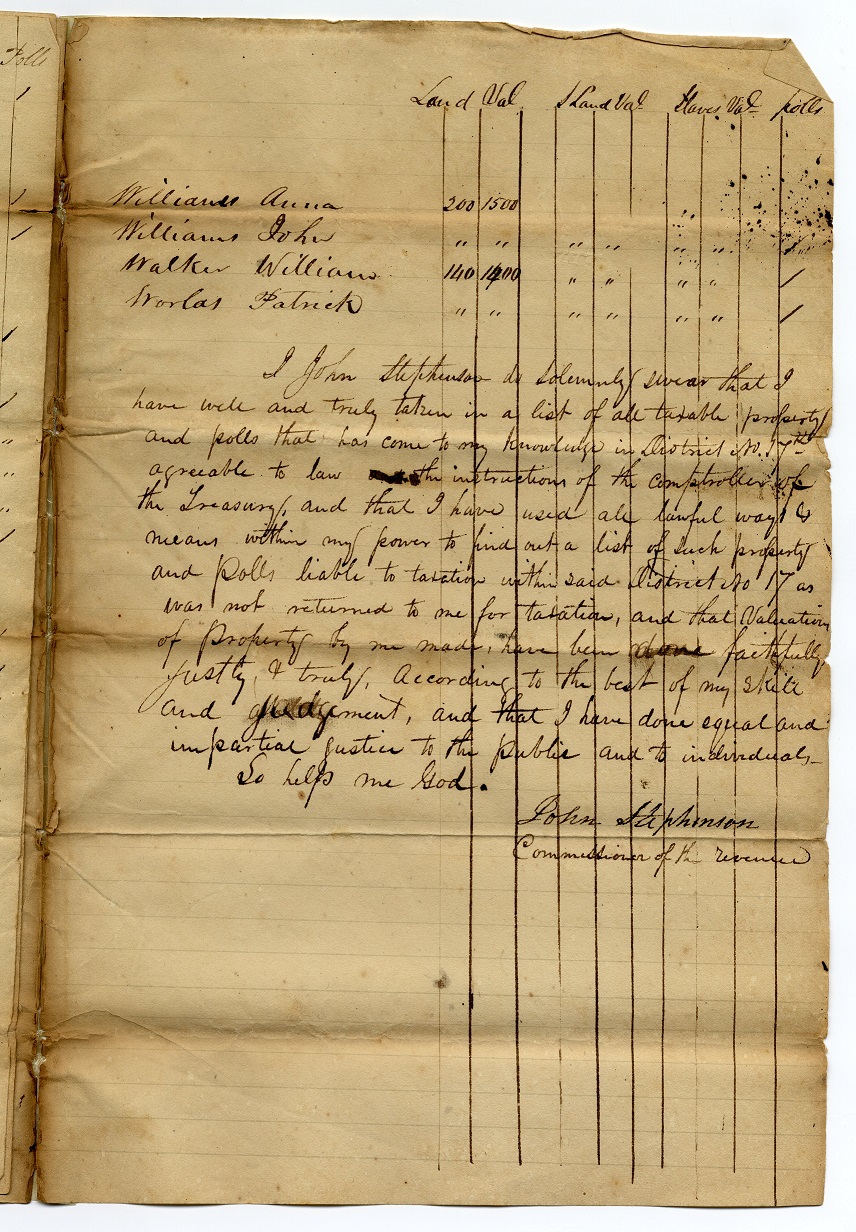 Polls
Land Val S Land Val Slaves Val polls
Williams Anna 200 1500 "
Williams John " " " " " " /
Walker William 140 1400 " " " " /
Worlds Patrick " " " " " " /
I John Stephenson do solemnly swear that I
have well and truly taken in a list of all taxable property
and polls that has come to my knowledge in District No. 17th
agreeable to law the instructions of the comptroller of
the Treasury, and that I have used all lawful ways &
means within my power to find out a list of such property
and polls liable to taxation within said District No 17 as
was not returned to me for taxation, and that Valuation
of Property by me made, have been done faithfully
justly, & truly, according to the best of my skill
and judgement, and that I have done equal and
impartial justice to the public and to individuals
So help me God.
John Stephinson
Commissioner of the revenue